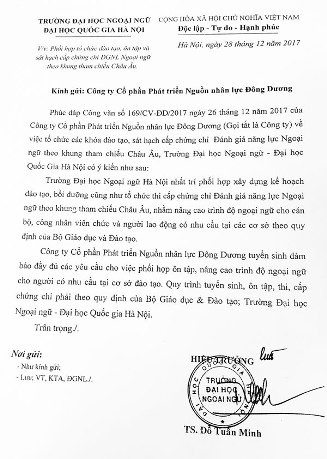 TRƯỜNG ĐẠI HỌC NGOẠI NGỮ
ĐẠI HỌC QUỐC GIA HÀ NỘI
CỘNG HÒA XÃ HỘI CHỦ NGHĨA VIỆT NAM
Độc lập - Tự do - Hạnh phúc
V/v: Phối hợp tổ chức đào tạo, ôn tập và
sát hạch cấp chứng chỉ ĐGNL Ngoại ngữ
theo khung tham chiếu Châu Âu.
Hà Nội, ngày 28 tháng 12 năm 2017
Kính gửi: Công ty Cổ phần Phát triển Nguồn nhân lực Đông Dương
Phúc đáp Công văn số 169/CV-DD/2017 ngày 26 tháng 12 năm 2017 của
Công ty Cổ phần Phát triển Nguồn nhân lực Đông Dương (Gọi tắt là Công ty) về
việc tổ chức các khóa đào tạo, sát hạch cấp chứng chỉ Đánh giá năng lực Ngoại
ngữ theo khung tham chiếu Châu Âu, Trường Đại học Ngoại ngữ - Đại học
Quốc Gia Hà Nội có ý kiến như sau:
Trường Đại học Ngoại ngữ Hà Nội nhất trí phối hợp xây dựng kế hoạch
đào tạo, bồi dưỡng cũng như tổ chức thi cấp chứng chỉ Đánh giá năng lực Ngoại
ngữ theo khung tham chiếu Châu Âu, nhằm nâng cao trình độ ngoại ngữ cho cán
bộ, công nhân viên chức và người lao động có nhu cầu tại các cơ sở theo quy
định của Bộ Giáo dục và Đào tạo.
Công ty Cổ phần Phát triển Nguồn nhân lực Đông Dương tuyển sinh đảm
bảo đầy đủ các yêu cầu cho việc phối hợp ôn tập, nâng cao trình độ ngoại ngữ
cho người có nhu cầu tại cơ sở đào tạo. Quy trình tuyển sinh, ôn tập, thi, cấp
chứng chỉ phải theo quy định của Bộ Giáo dục & Đào tạo; Trường Đại học
Ngoại ngữ - Đại học Quốc gia Hà Nội.
Trân trọng./.
Nơi gửi:
- Như kính gửi;
- Lưu: VT, KTA, ĐGNL./.
HIỆU TRƯỞNG
TRƯỜNG
ĐẠI HỌC
NGOẠI NGỮ
TS. Đỗ Tuấn Minh